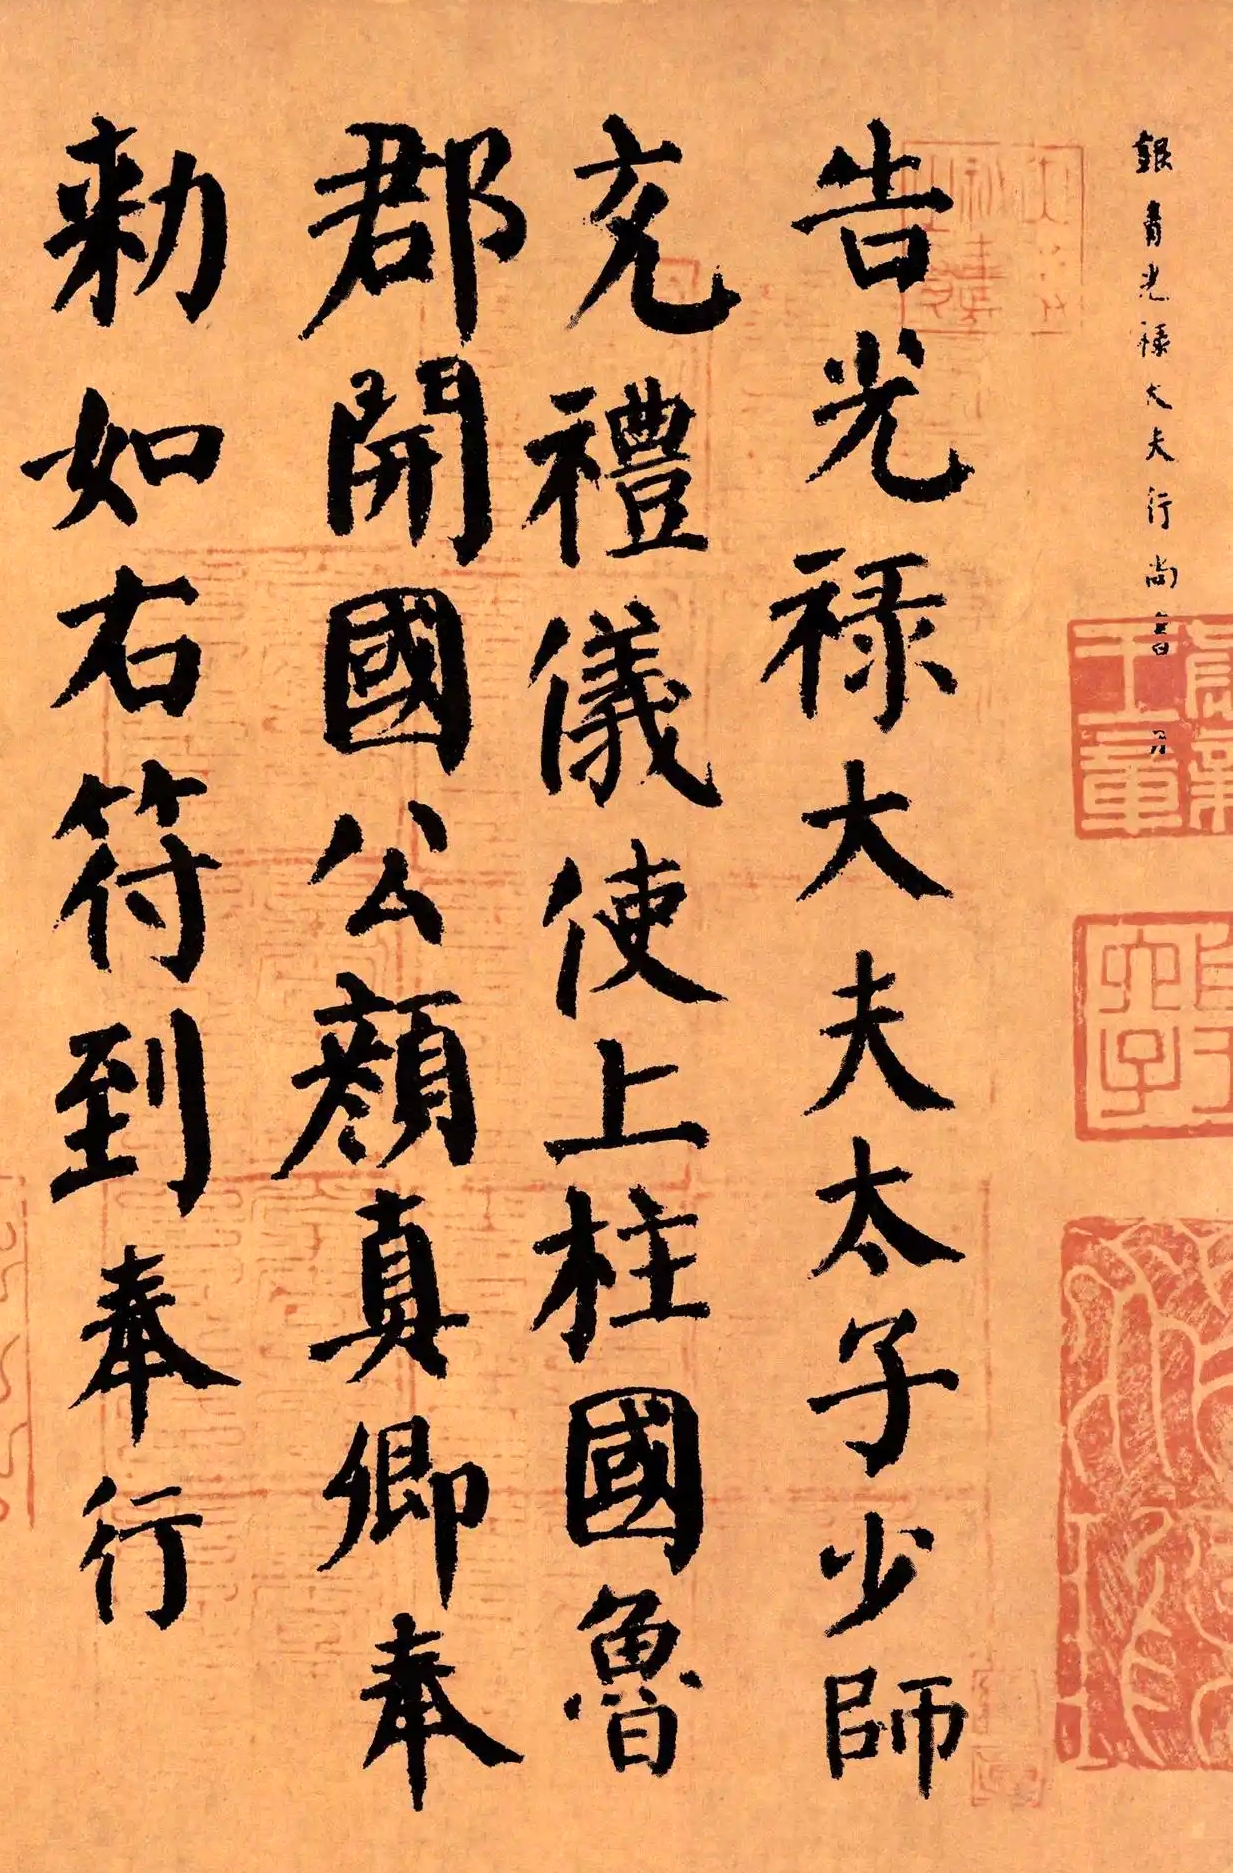 銀青光禄大夫行尚書
告光禄大夫太子少師
充禮儀使上柱國魯
郡開國公顏真卿奉
勑如右符到奉行